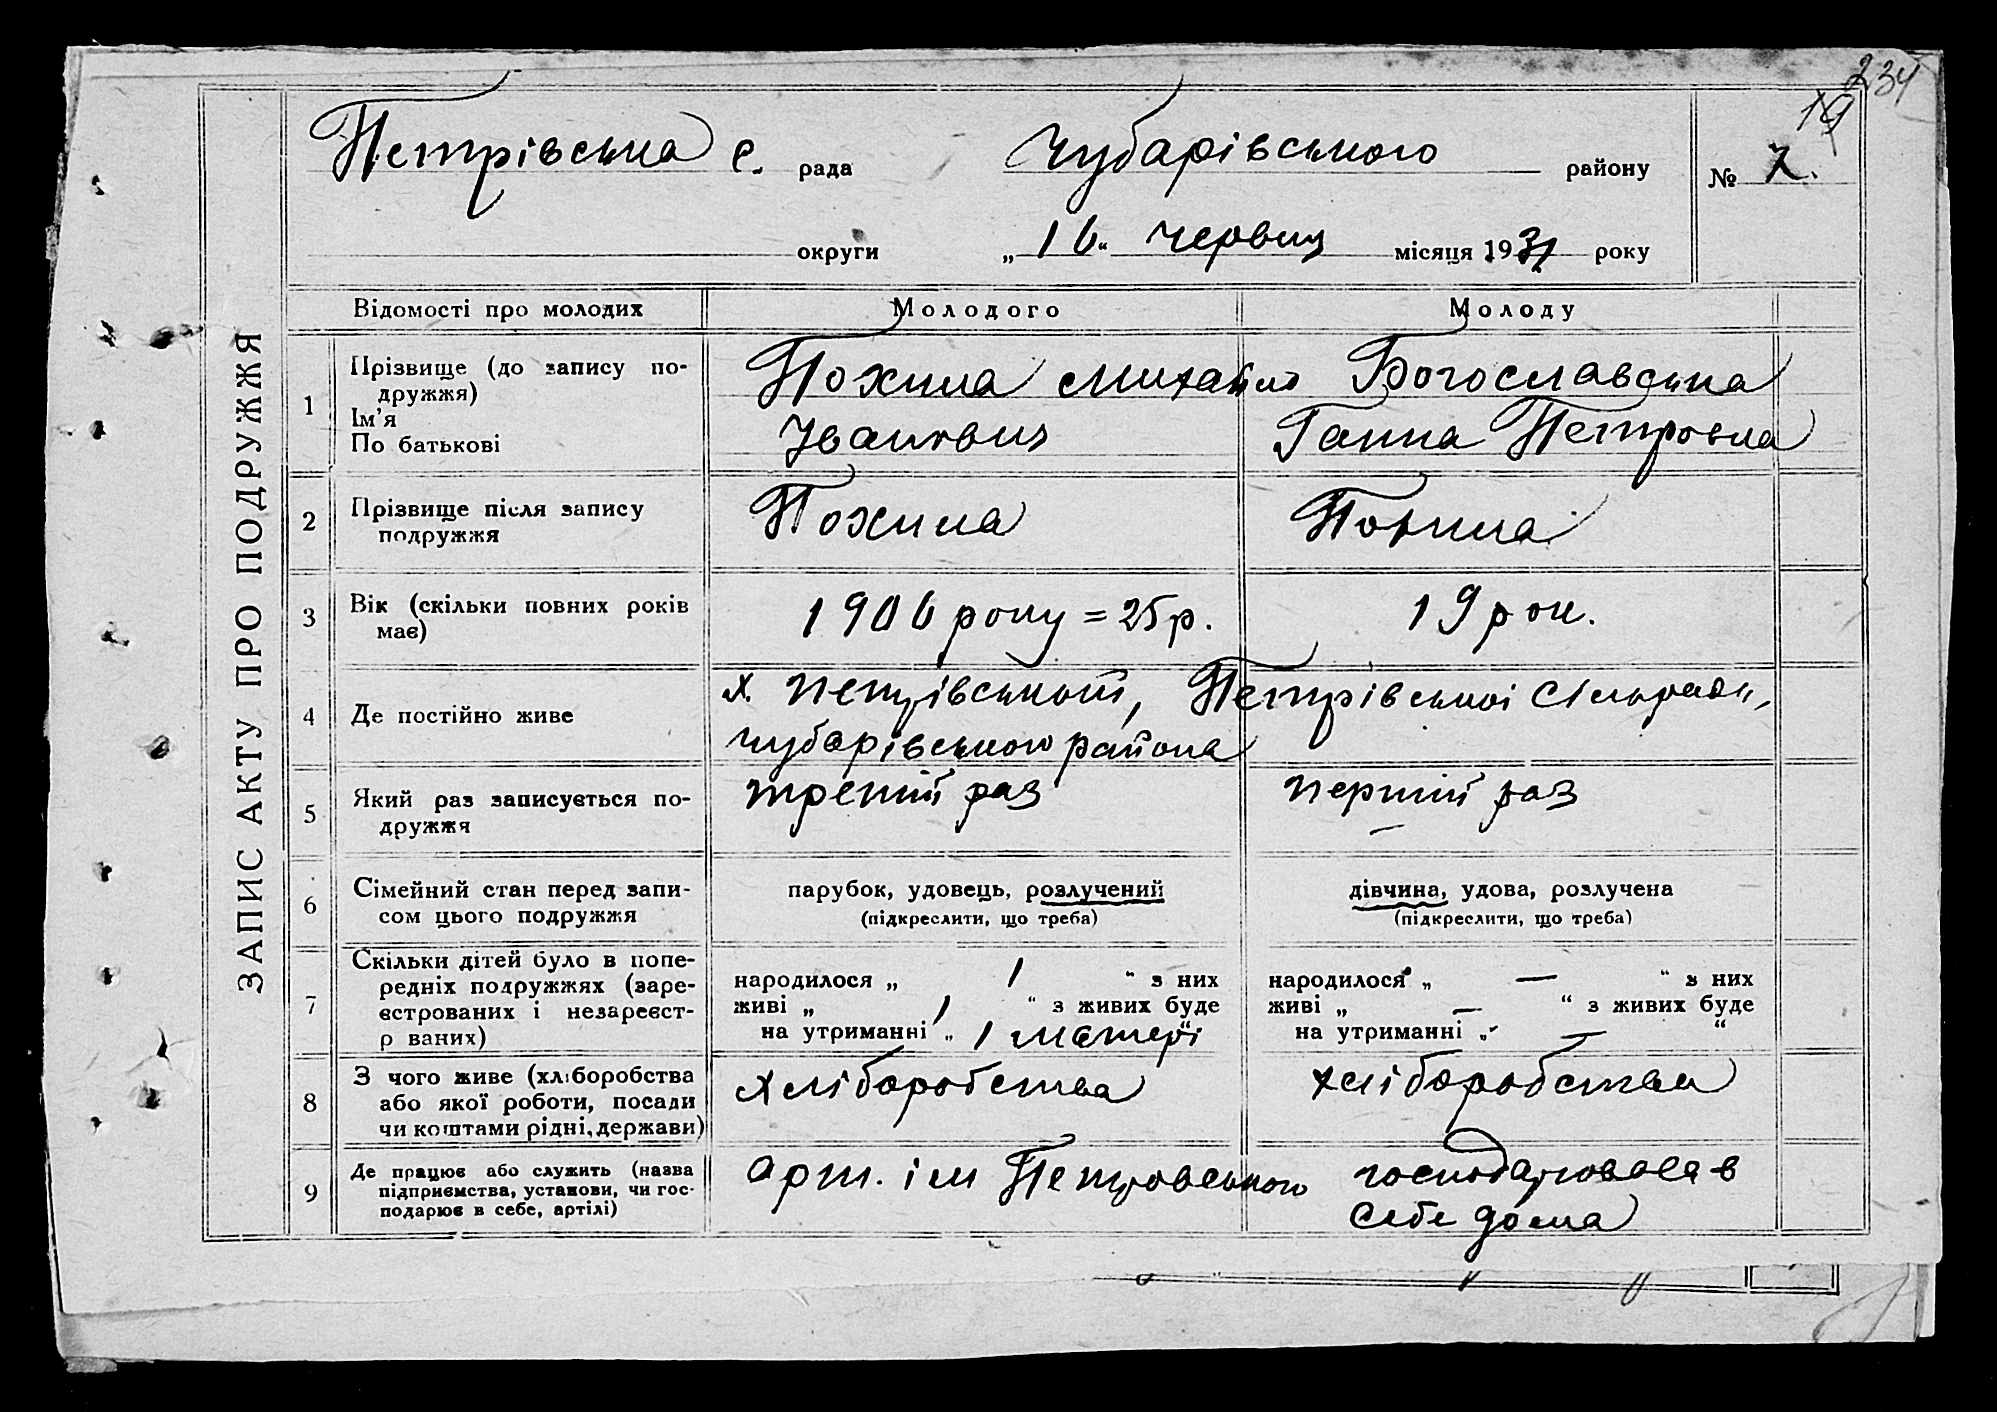 234
19
Петрівська с. рада Чубарівського району № 7.
округи „16“ червня місяця 1931 року
ЗАПИС АКТУ ПРО ПОДРУЖЖЯ
Відомості про молодих Молодого Молоду
1 Прізвище (до запису подружжя) Похила Михайло Богославська
Ім'я
По батькові Іванович Ганна Петровна
2 Прізвище після запису Похила Похила
подружжя
3 Вік (скільки повних років 1906 року = 25 р. 19 рок.
має)
4 Де постійно живе х. Петрівський, Петрівської Сільради,
Чубарівського района
5 Який раз записується по- третий раз перший раз
дружжя
6 Сімейний стан перед запи- парубок, удовець, розлучений дівчина, удова, розлучена
сом цього подружжя (підкреслити, що треба) (підкреслити, що треба)
7 Скільки дітей було в попе-
редніх подружжях (заре- народилося „ 1 “ з них народилося „ — “ з них
єстрованих і незареєст- живі „ 1 “ з живих буде живі „ — “ з живих буде
р ваних) на утриманні „ 1 матері “ на утриманні „ — “
8 З чого живе (хліборобства хліборобства хліборобства
або якої роботи, посади
чи коштами рідні, держави)
9 Де працює або служить (назва арт. ім Петровського господарювала в
підприємства, установи, чи гос-
подарює в себе, артілі) себе дома